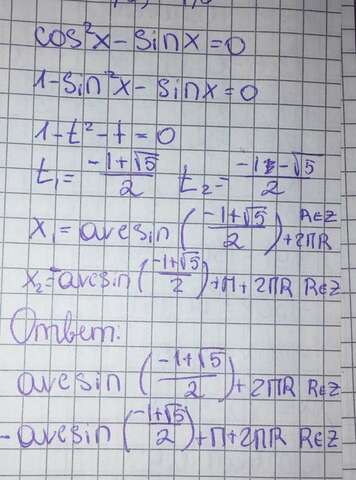 cos²x - sinx = 0
1 - sin²x - sinx = 0
1 - t² - t = 0
t₁ = (-1+√5)/2 t₂ = (-1-√5)/2
x₁ = arcsin((-1+√5)/2) + 2πR R∈Z
x₂ = -arcsin((-1+√5)/2) + π + 2πR R∈Z
Ответ:
arcsin((-1+√5)/2) + 2πR R∈Z
- arcsin((-1+√5)/2) + π + 2πR R∈Z